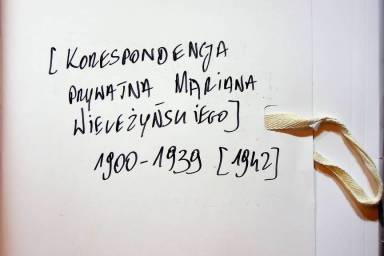 [KORESPONDENCJA
PRYWATNA MARIANA
WIELEŻYŃSKIEGO]
1900-1939 [1942]